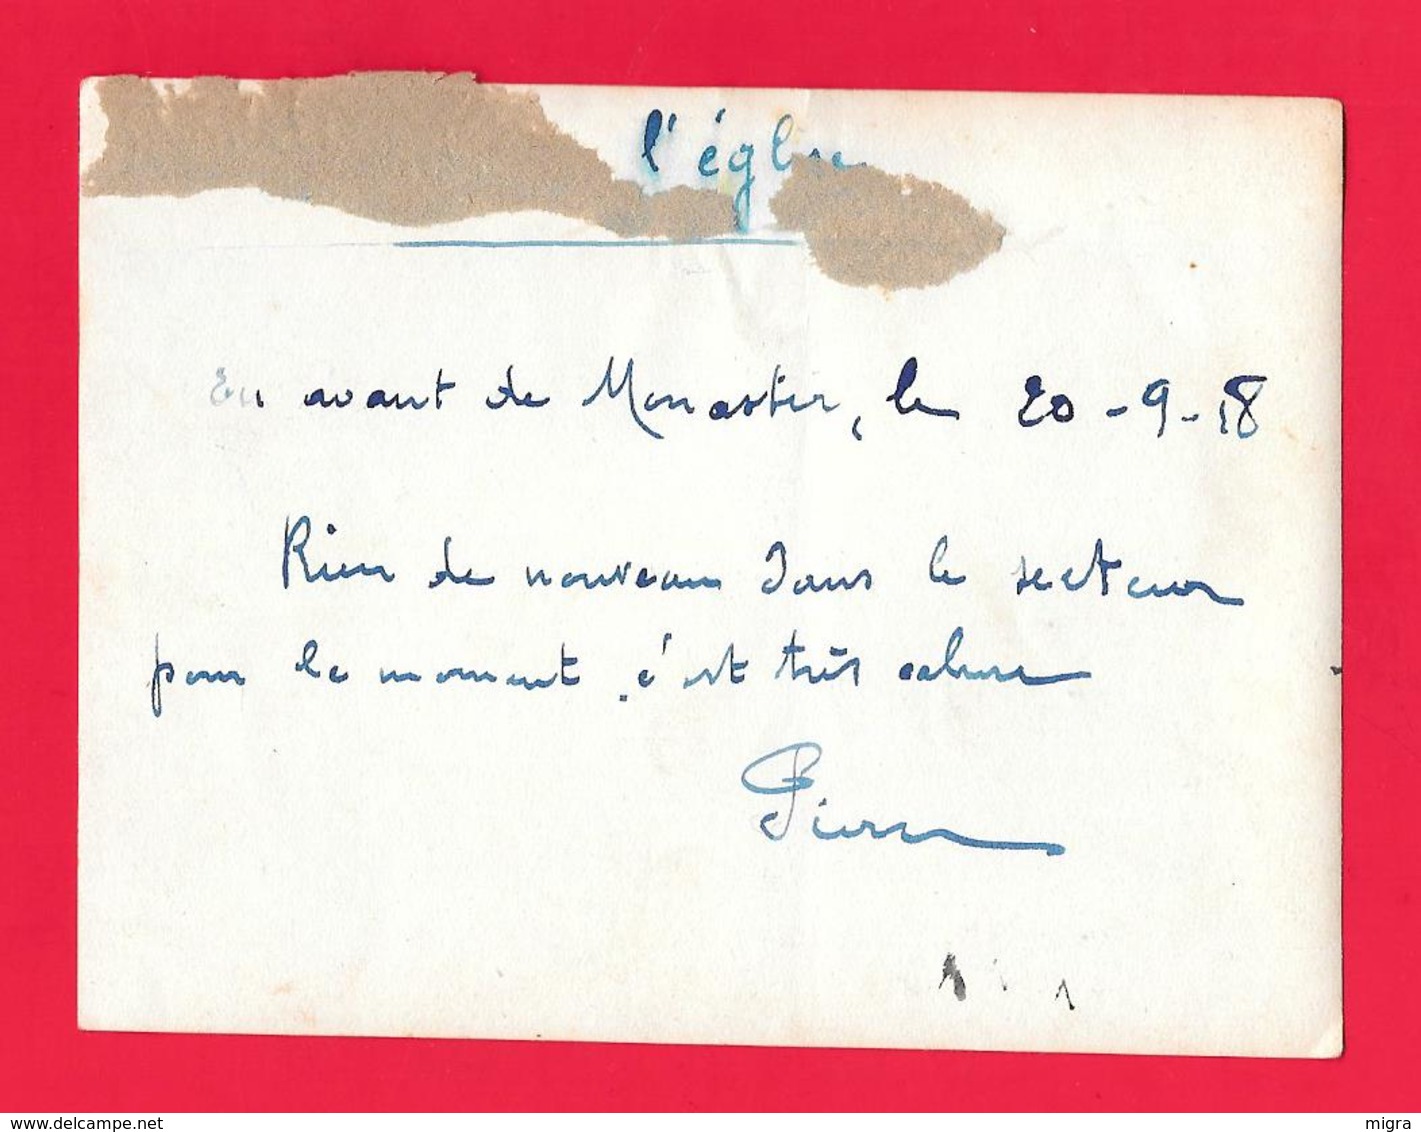 l'église
En avant de Monastir, le 20-9-18
Rien de nouveau dans le secteur
pour le moment, c'est très calme
Pierre
www.delcampe.net
migra